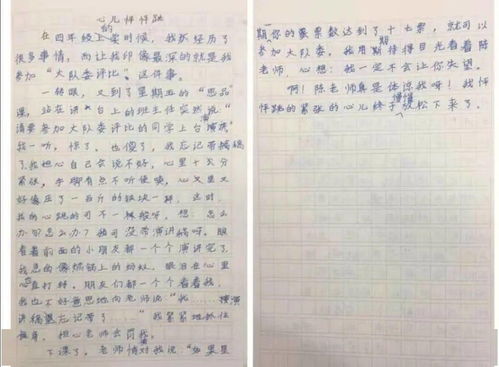 心儿怦怦跳
在四年级上的时候，我经历了
很多事情，而让我印像最深的就是我
参加“大队委评比”这件事。
一转眼，又到了星期五的“思品”
课，站在讲台上的班主任突然说：“
请要参加大队委评比的同学上台演讲”
我一听，惊了，也傻了，我忘记带稿
了我担心自己会说不好，心里十分
紧张，手脚有点不听使唤，心又里又
好像压了一百斤的铁块一样，这时，
我的心跳的可不一般呀，想：怎么
办？怎么办？我可没带演讲稿呀。眼
看着前面的小朋友都一个个演讲完了，
我急的像热锅上的蚂蚁，眼泪在心里
直打转。朋友们都一个个看着我，
我也不好意思地向老师说“我……演
讲稿忘记带了……”我紧紧地抓住
担心老师会罚我。
下课了，老师对我说：“如果星
期你的票数达到了十七票，就可以
参加大队委。我用期待得目光看着陈
老师，心想：我一定不会让你失望。
啊！陈老师真是体谅我呀！我怦
怦跳的紧张的心儿终于慢慢放松下来了。